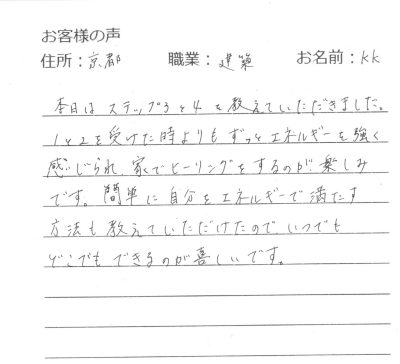 お客様の声
住所：京都 職業：建築 お名前：KK
本日は ステップ3と4 を 教えていただきました。
1と2を受けた時よりも ずっと エネルギーを強く
感じられ、家でヒーリングをするのが 楽しみ
です。簡単に 自分を エネルギーで 満たす
方法も 教えていただけたので いつでも
どこでも できるのが 喜しいです。